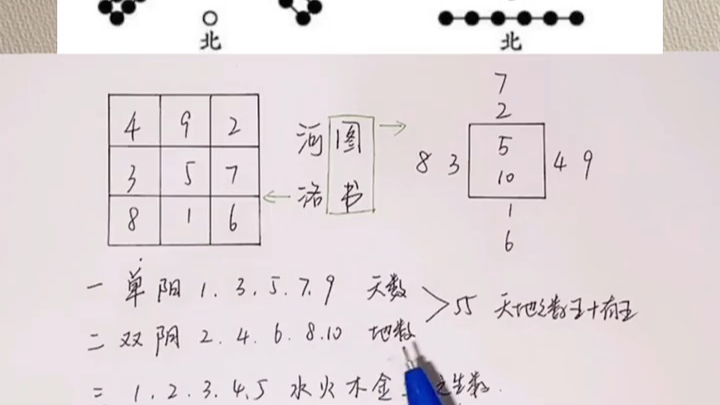 北 北
4 9 2
3 5 7
8 1 6
河图
洛书
7
2
8 3 5 4 9
10
1
6
一 单 阳 1. 3. 5. 7. 9 天数
二 双 阴 2. 4. 6. 8. 10 地数
55 天地之数五十有五
= 1. 2. 3. 4. 5 水火木金 之生数.